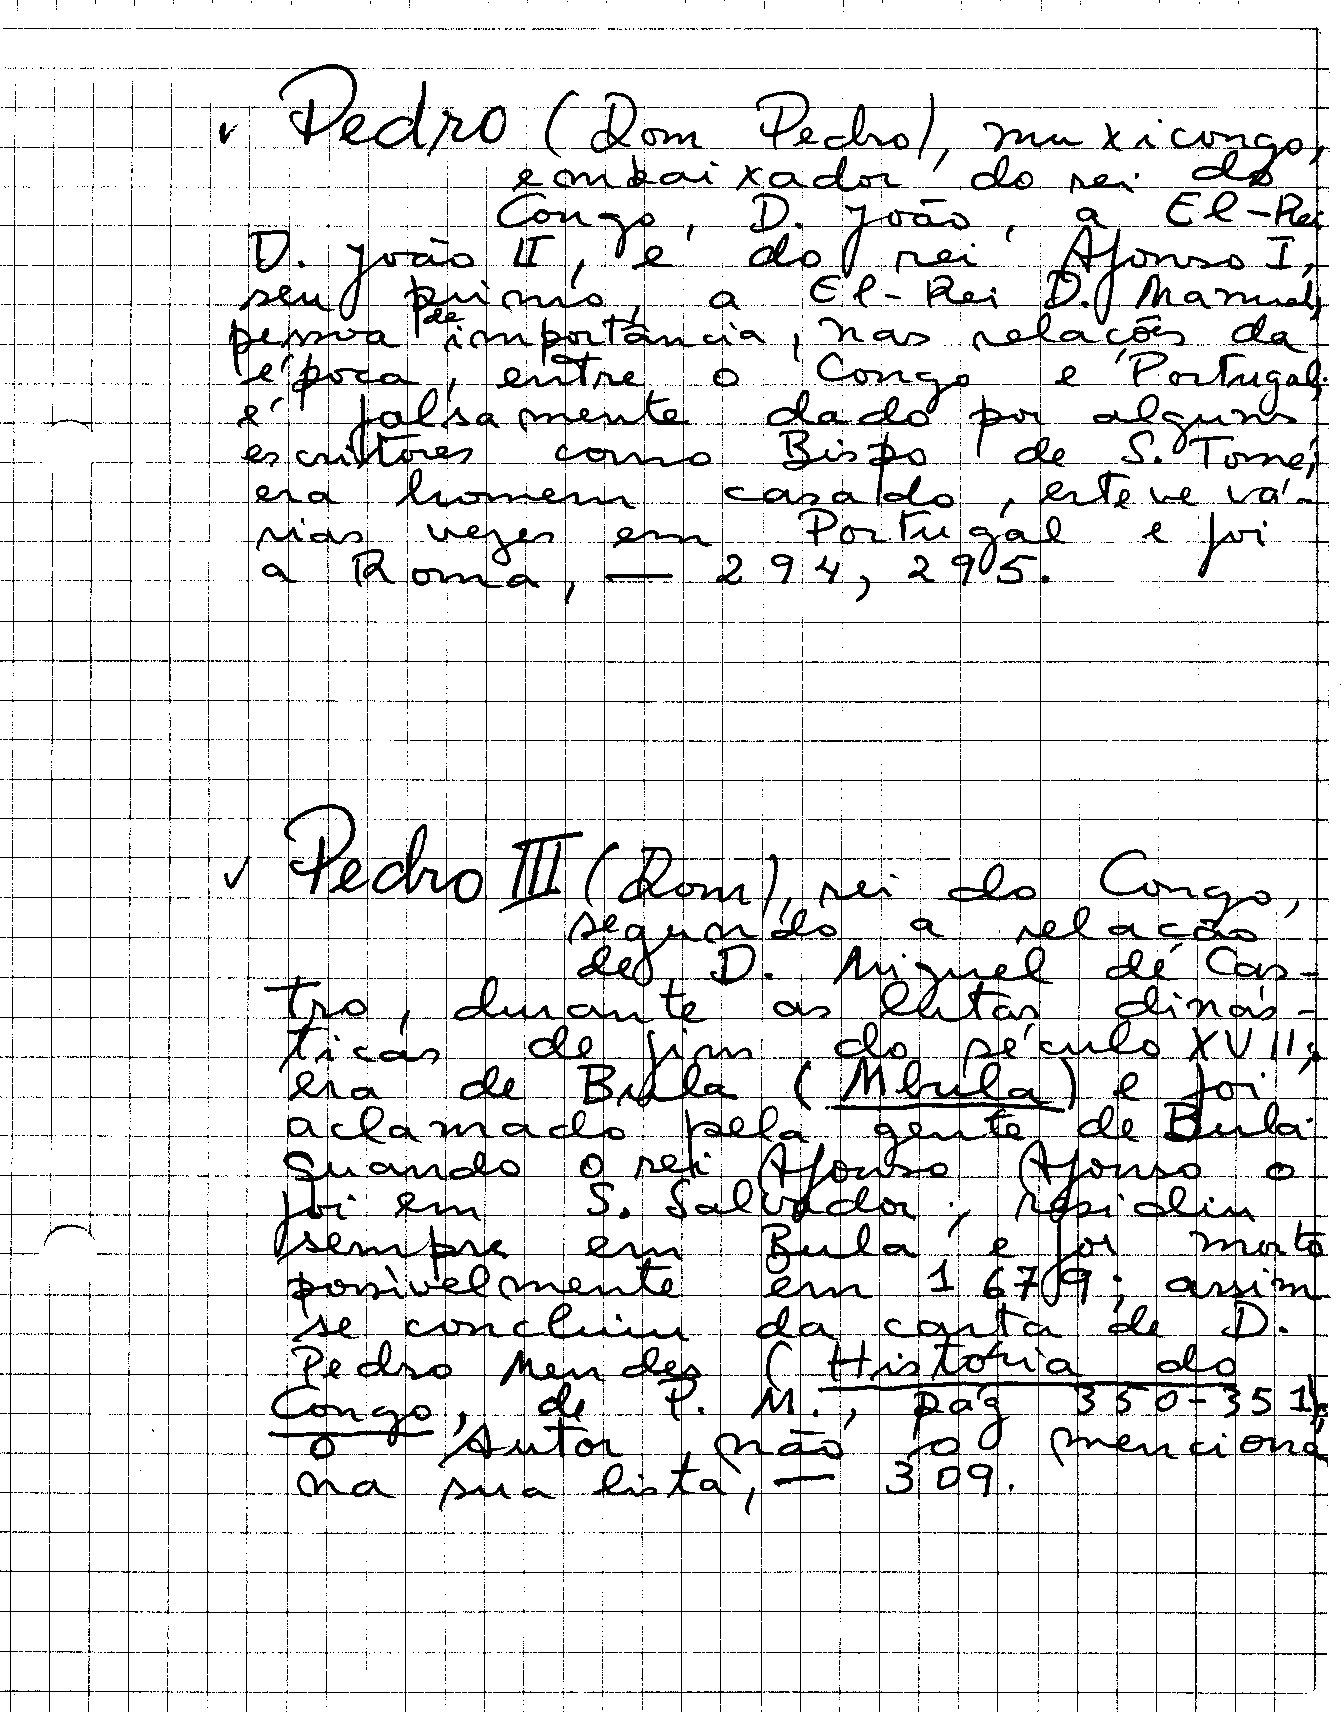 ✓ Pedro (Dom Pedro), muxicongo,
embaixador do rei do
Congo, D. João, a El-Rei
D. João II, e do rei Afonso I,
seu primo, a El-Rei D. Manuel,
pessoa de importância, nas relações da
época, entre o Congo e Portugal;
é falsamente dado por alguns
escritores como Bispo de S. Tomé;
era homem casado, esteve vá-
rias vezes em Portugal e foi
a Roma, — 294, 295.
✓ Pedro III (Dom), rei do Congo,
segundo a relação
de D. Miguel de Cas-
tro, durante as lutas dinás-
ticas de fins do século XVII;
era de Bula (Mbula) e foi
aclamado pela gente de Bula
quando o rei Afonso Afonso o
foi em S. Salvador; residiu
sempre em Bula e foi morto
possivelmente em 1679; assim
se concluiu da carta de D.
Pedro Mendes (História do
Congo, de P. M., pág 350-351);
o Autor não o menciona
na sua lista, — 309.